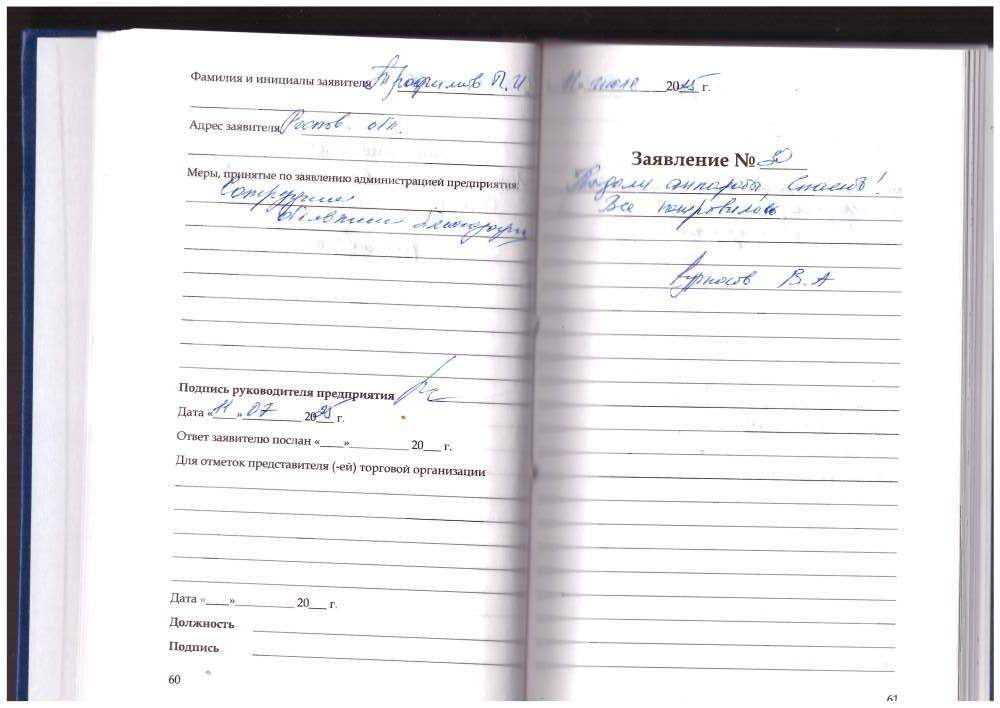 Фамилия и инициалы заявителя Трофимов П.И.
Адрес заявителя Ростов. обл.
Меры, принятые по заявлению администрацией предприятия:
Сотруднику
объявлена благодарн
Подпись руководителя предприятия
Дата «11» 07 2025 г.
Ответ заявителю послан «____»__________ 20___ г.
Для отметок представителя (-ей) торговой организации
Дата «____»__________ 20___ г.
Должность
Подпись
60
11 июля 2025 г.
Заявление №
Выдали аппараты, спасибо!
Все понравилось
В.А
61